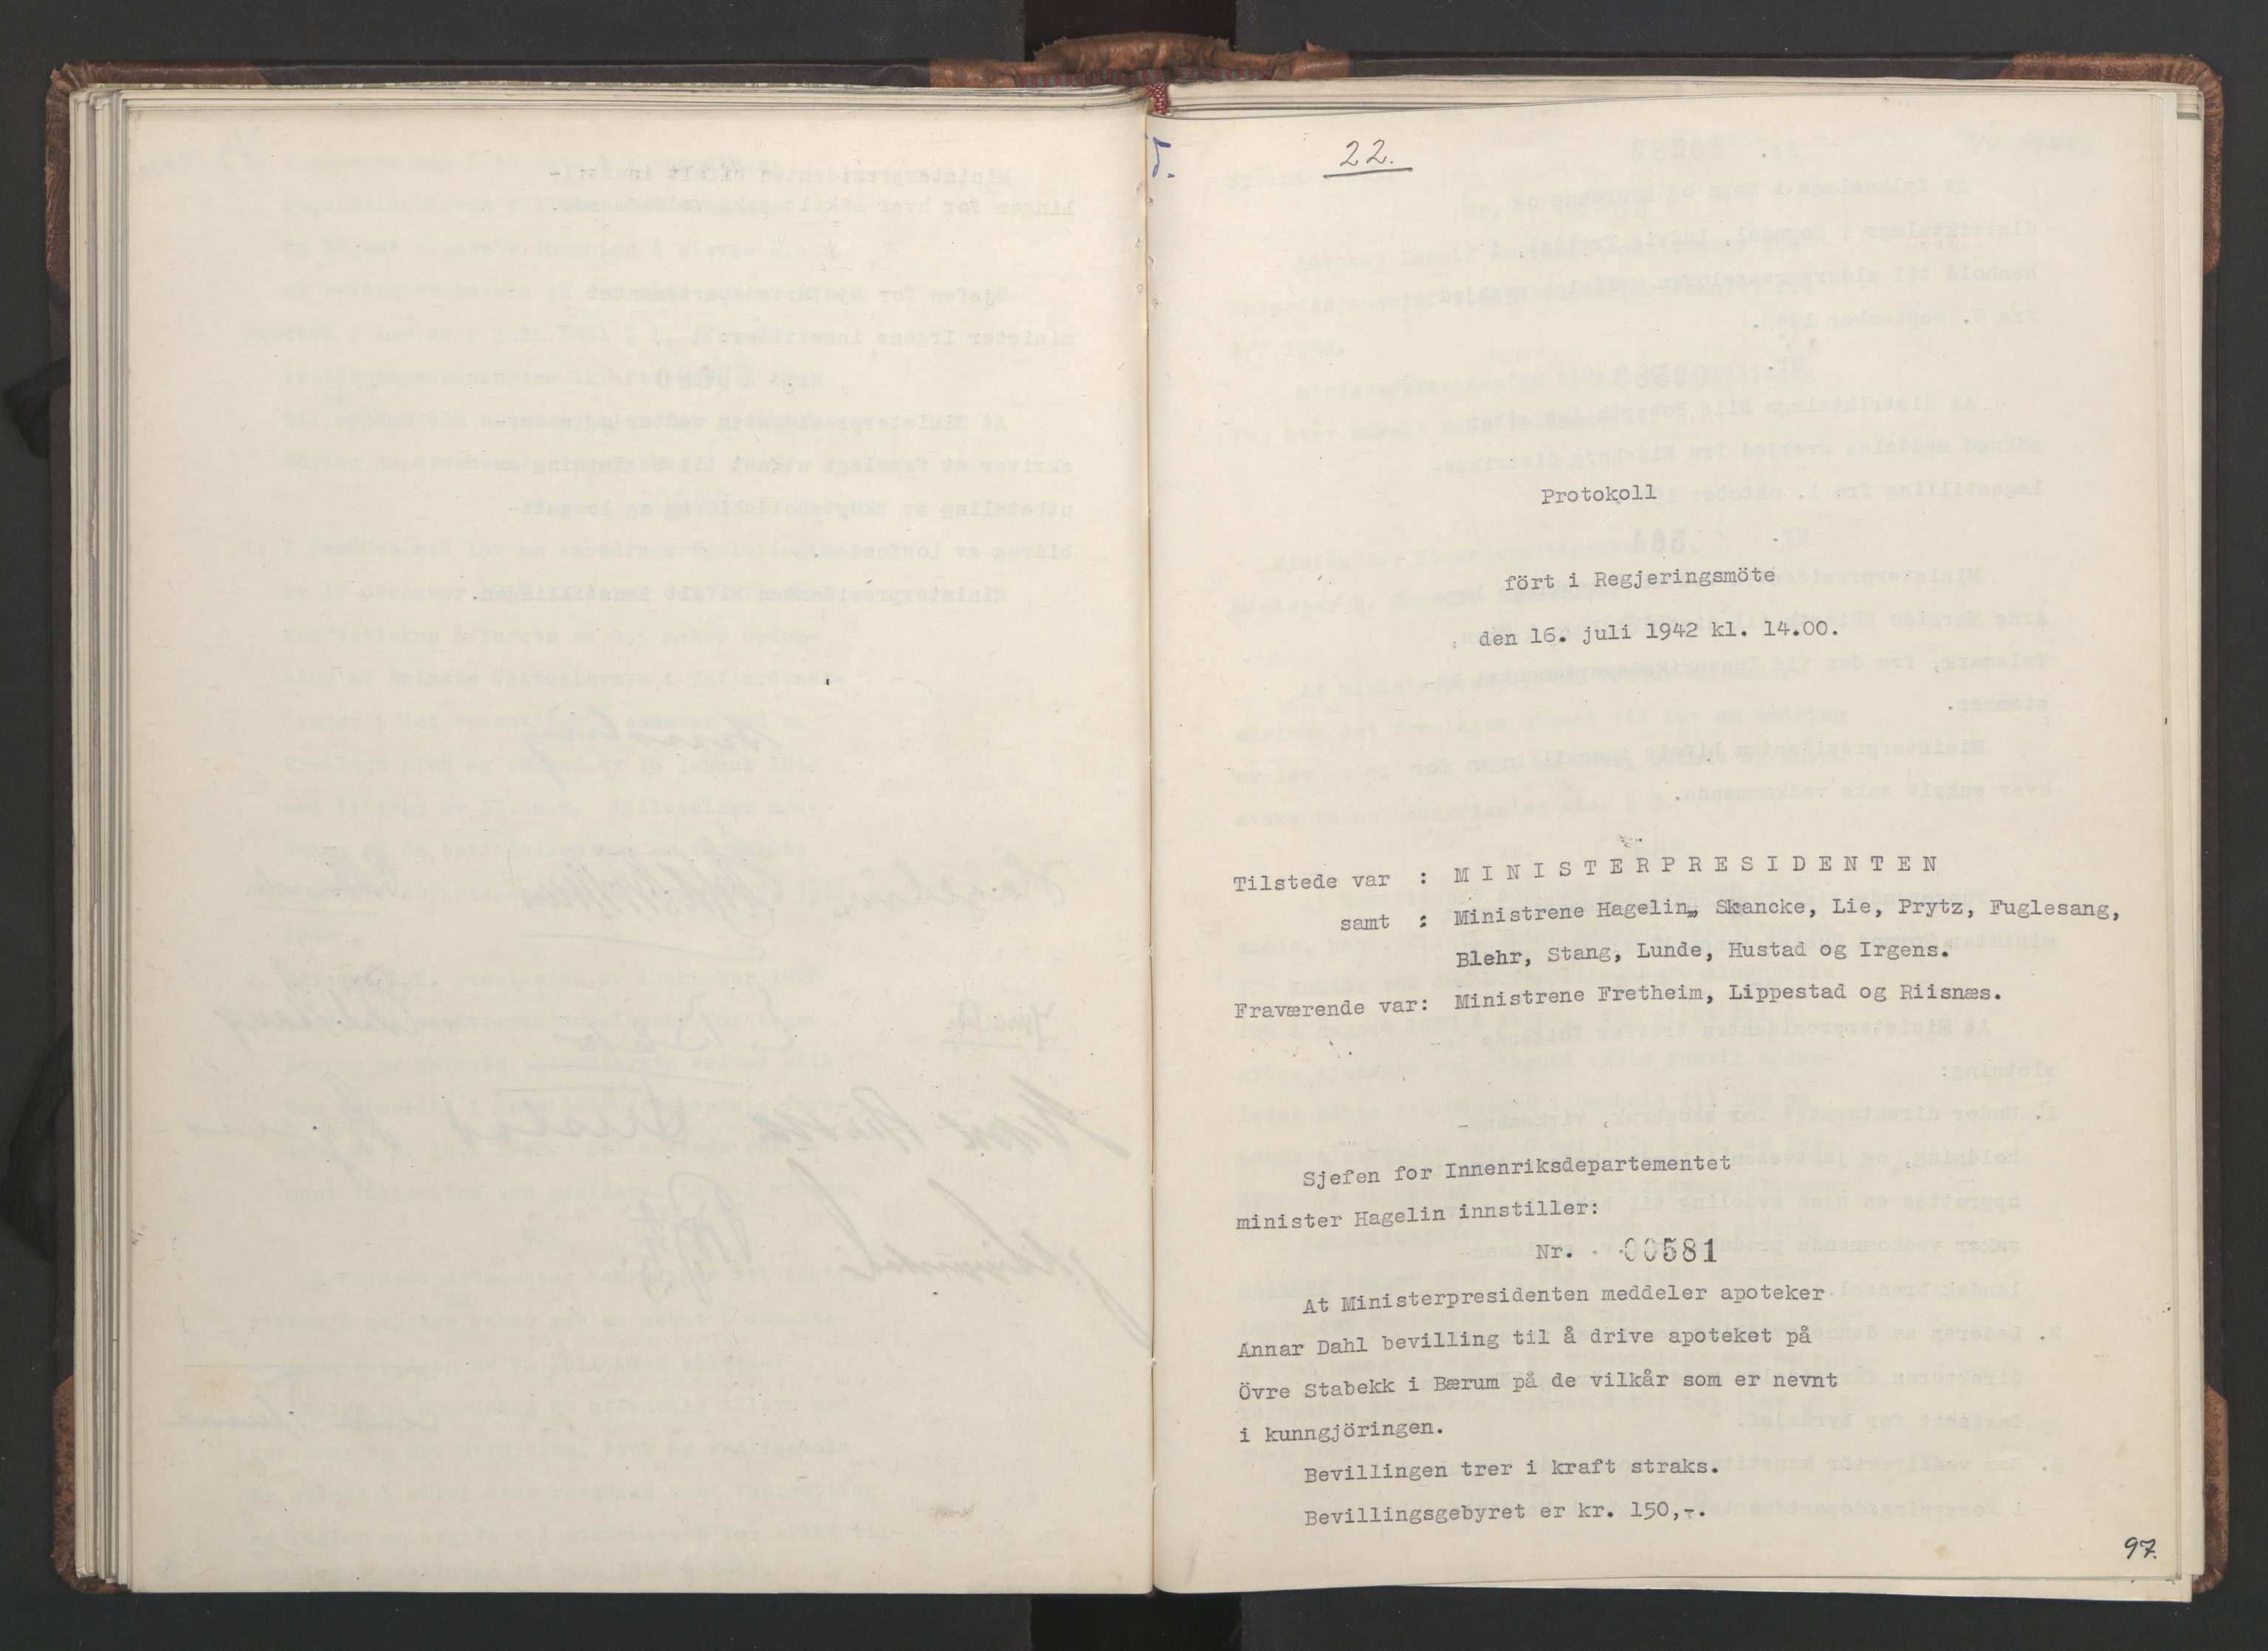 22.
Protokoll
fört i Regjeringsmöte
den 16. juli 1942 kl. 14.00.
Tilstede var : MINISTERPRESIDENTEN
samt : Ministrene Hagelin, Skancke, Lie, Prytz, Fuglesang,
Blehr, Stang, Lunde, Hustad og Irgens.
Fraværende var: Ministrene Fretheim, Lippestad og Riisnæs.
Sjefen for Innenriksdepartementet
minister Hagelin innstiller:
Nr. 00581
At Ministerpresidenten meddeler apoteker
Annar Dahl bevilling til å drive apoteket på
Övre Stabekk i Bærum på de vilkår som er nevnt
i kunngjöringen.
Bevillingen trer i kraft straks.
Bevillingsgebyret er kr. 150,-.
97.